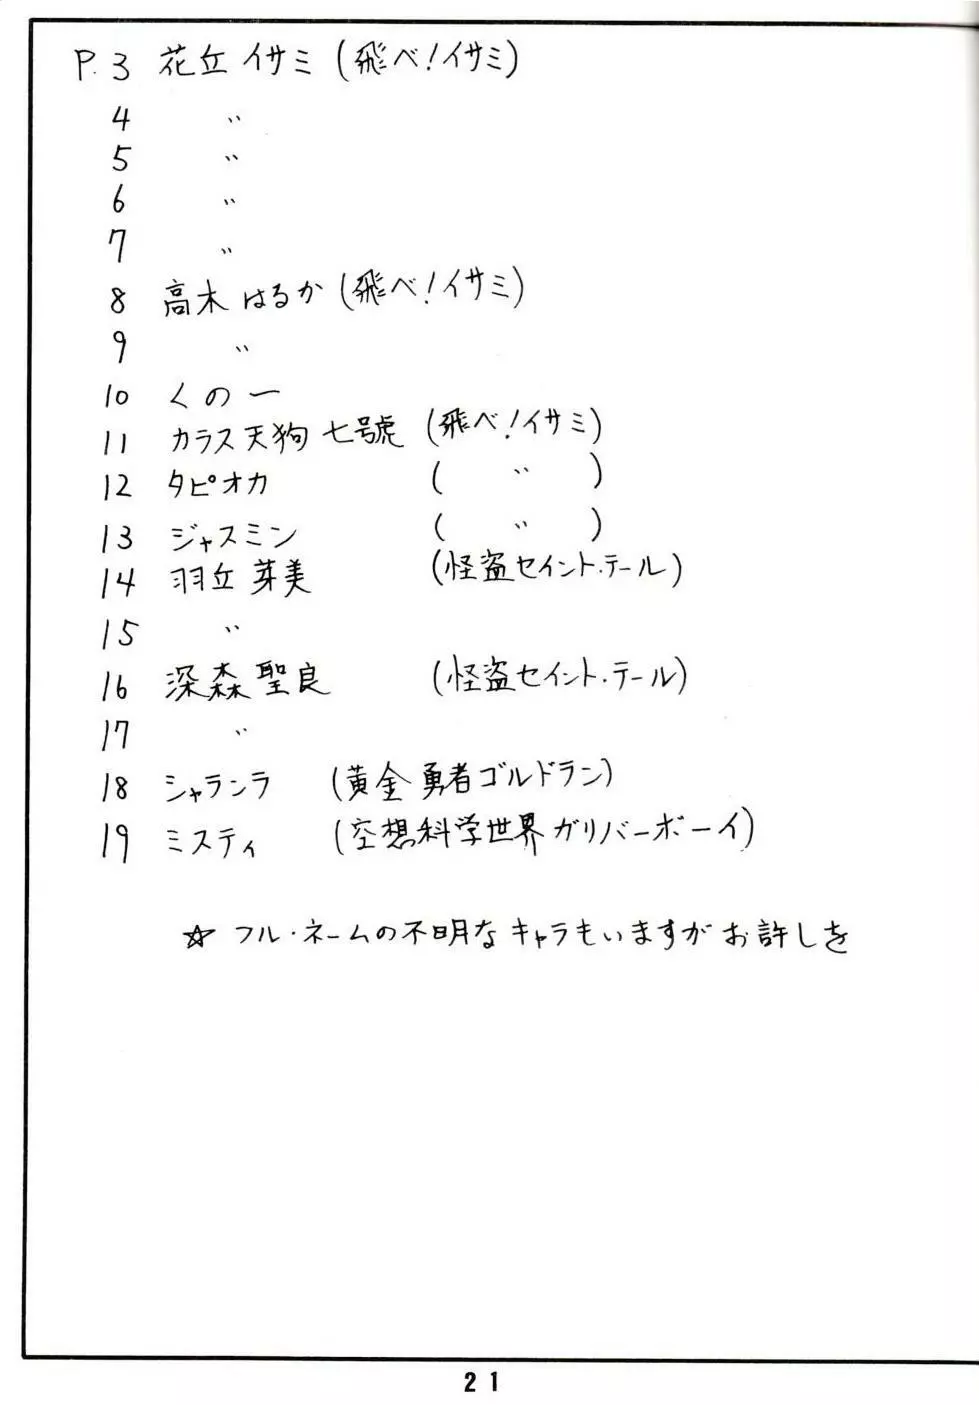 P.3 花丘 イサミ (飛べ!イサミ)
4 〃
5 〃
6 〃
7 〃
8 高木 はるか (飛べ!イサミ)
9 〃
10 くのー
11 カラス天狗 七號 (飛べ!イサミ)
12 タピオカ ( 〃 )
13 ジャスミン ( 〃 )
14 羽丘 芽美 (怪盗セイント・テール)
15 〃
16 深森 聖良 (怪盗セイント・テール)
17 〃
18 シャランラ (黄金勇者ゴルドラン)
19 ミスティ (空想科学世界ガリバーボーイ)
☆ フル・ネームの不明なキャラもいますがお許しを
21